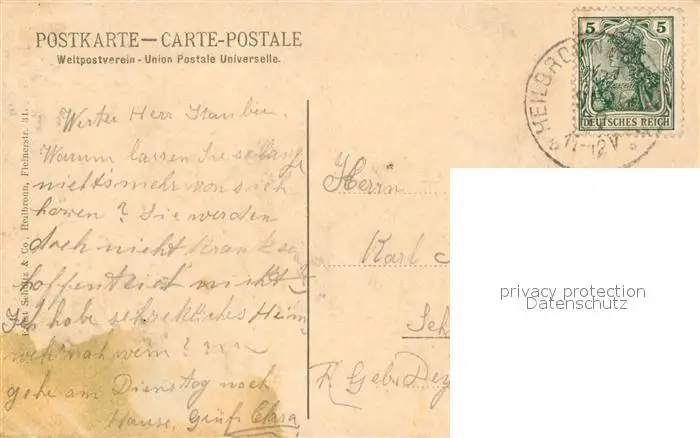 POSTKARTE — CARTE-POSTALE
Weltpostverein - Union Postale Universelle.
5 5
DEUTSCHES REICH
HEILBRONN
11-12V
& Co., Heilbronn, Fleinerstr. 31.
Werter Herr
Warum lassen Sie so lange
nichts mehr von sich
hören? Sie werden
doch nicht krank sein
hoffentlich nicht?
Ich habe schrekliches Heim
weh nach wem?
gehe am Dienstag nach
Hause. Gruß Clara
Herrn
Karl
privacy protection
Datenschutz